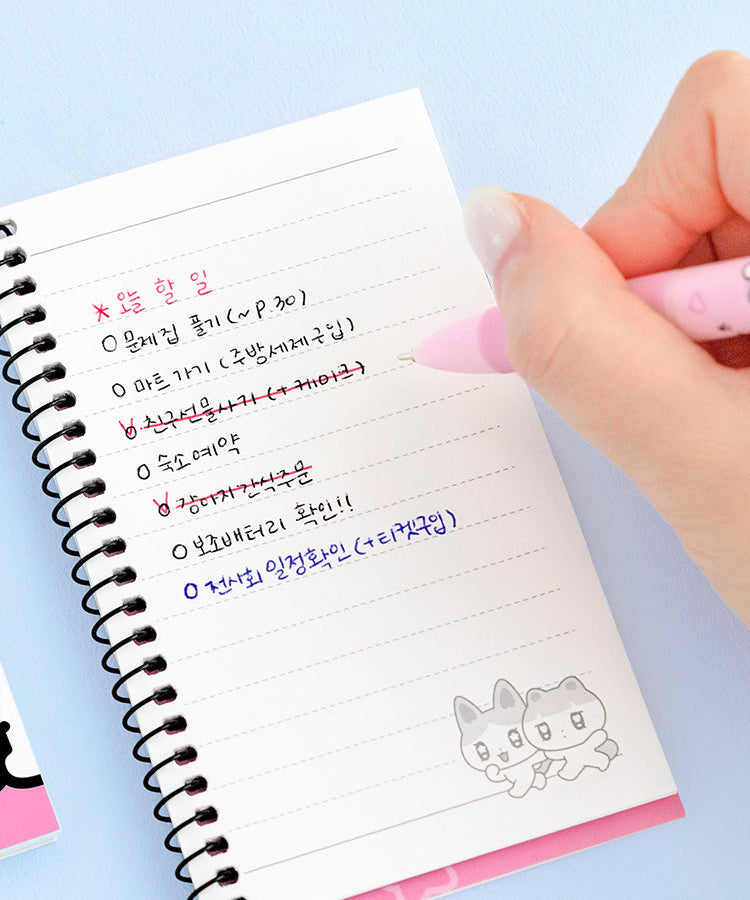 * 오늘 할 일
O 문제집 풀기 (~P.30)
O 마트가기 (주방세제구입)
O 친구선물사기 (+케이크)
O 숙소예약
O 강아지간식주문
O 보조배터리 확인!!
O 전시회 일정확인 (+티켓구입)